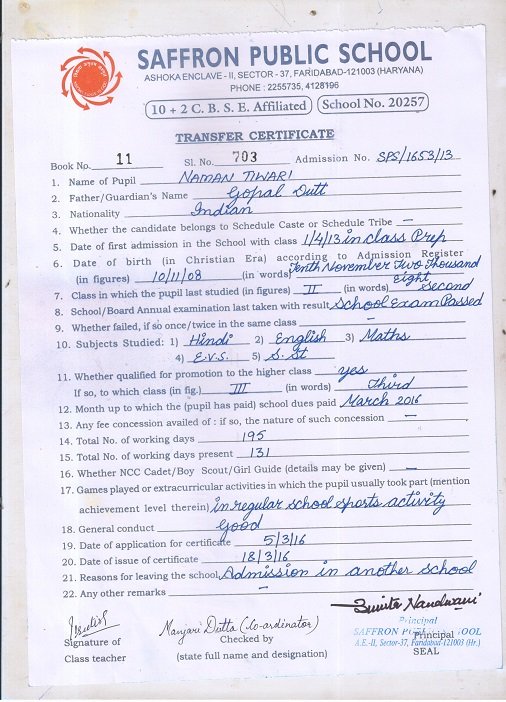 SAFFRON PUBLIC SCHOOL
ASHOKA ENCLAVE - II, SECTOR - 37, FARIDABAD-121003 (HARYANA)
PHONE : 2255735, 4128196
10 + 2 C. B. S. E. Affiliated School No. 20257
TRANSFER CERTIFICATE
Book No. 11 Sl. No. 703 Admission No. SPS/1653/13
1. Name of Pupil NAMAN TIWARI
2. Father/Guardian's Name Gopal Dutt
3. Nationality Indian
4. Whether the candidate belongs to Schedule Caste or Schedule Tribe —
5. Date of first admission in the School with class 1/4/13 in class Prep
6. Date of birth (in Christian Era) according to Admission Register
(in figures) 10/11/08 (in words) Tenth November Two Thousand Eight
7. Class in which the pupil last studied (in figures) II (in words) Second
8. School/Board Annual examination last taken with result School Exam Passed
9. Whether failed, if so once/twice in the same class —
10. Subjects Studied: 1) Hindi 2) English 3) Maths
4) E.V.S. 5) S.St
11. Whether qualified for promotion to the higher class yes
If so, to which class (in fig.) III (in words) Third
12. Month up to which the (pupil has paid) school dues paid March 2016
13. Any fee concession availed of : if so, the nature of such concession —
14. Total No. of working days 195
15. Total No. of working days present 131
16. Whether NCC Cadet/Boy Scout/Girl Guide (details may be given) —
17. Games played or extracurricular activities in which the pupil usually took part (mention
achievement level therein) in regular school sports activity
18. General conduct Good
19. Date of application for certificate 5/3/16
20. Date of issue of certificate 18/3/16
21. Reasons for leaving the school Admission in another school
22. Any other remarks —
Sunita Nandwani
Manjari Dutta (Co-ordinator)
Principal
SAFFRON PUBLIC SCHOOL
A.E.-II, Sector-37, Faridabad-121003 (Hr.)
Signature of Checked by Principal
Class teacher (state full name and designation) SEAL